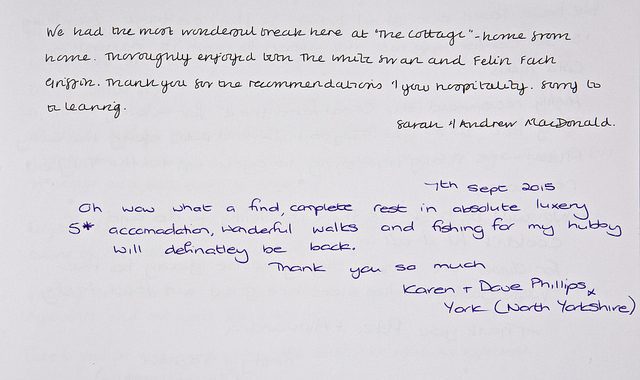 We had the most wonderful break here at "The Cottage" - home from
home. Thoroughly enjoyed both The White Swan and Felin Fach
Griffin. Thank you for the recommendations & your hospitality. Sorry to
be leaving.
Sarah & Andrew MacDonald.
7th Sept 2015
Oh wow what a find, complete rest in absolute luxery
5* accomadation, wonderful walks and fishing for my hubby
will definatley be back.
Thank you so much
Karen + Dave Phillips x
York (North Yorkshire)